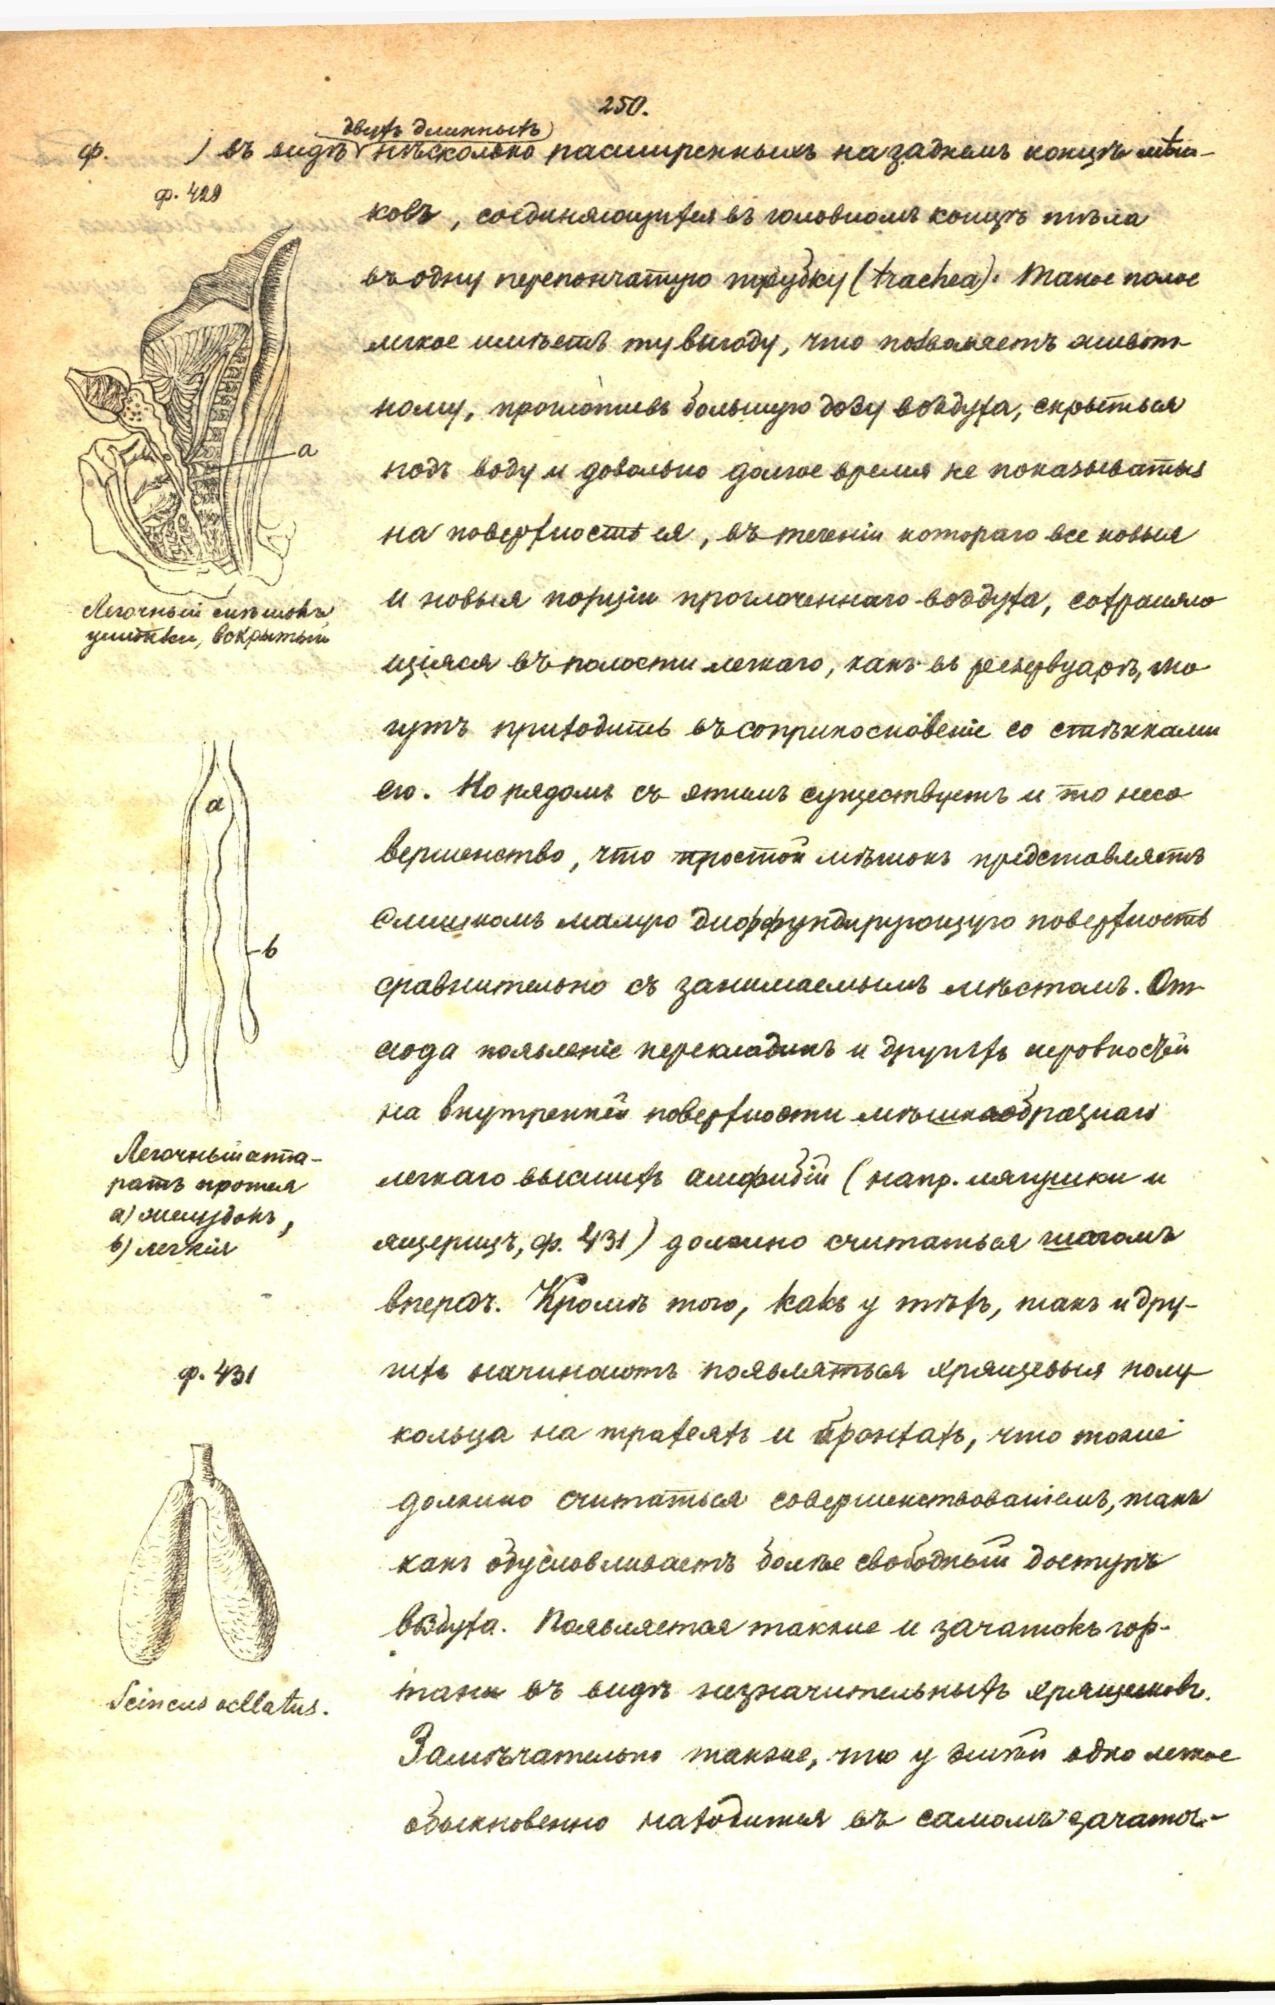 250.
двухъ длинныхъ
ф. ) въ видѣ нѣсколько расширенныхъ на заднемъ концѣ мѣш-
ф. 429
ковъ, соединяющихся въ головномъ концѣ тѣла
въ одну перепончатую трубку (trachea). Такое полое
легкое имѣетъ ту выгоду, что позволяетъ живот-
ному, проглотивъ большую дозу воздуха, скрыться
подъ воду и довольно долгое время не показываться
a
на поверхность ея, въ теченіи котораго все новыя
и новыя порціи проглоченнаго воздуха, сохраняю
Легочный мѣшокъ
улитки, вскрытый
щіяся въ полости легкаго, какъ въ резервуарѣ, мо
гутъ приходить въ соприкосновеніе со стѣнками
его. Но рядомъ съ этимъ существуетъ и то несо
a
вершенство, что простой мѣшокъ представляетъ
слишкомъ малую диффундирующую поверхность
b
сравнительно съ занимаемымъ мѣстомъ. От
сюда появленіе перекладинъ и другихъ неровностей
на внутренней поверхности мѣшкообразнаго
Легочный аппа-
ратъ протея
а) желудокъ,
b) легкія
легкаго высшихъ амфибій (напр. лягушки и
ящерицъ, ф. 431) должно считаться шагомъ
впередъ. Кромѣ того, какъ у тѣхъ, такъ и дру-
ф. 431
гихъ начинаютъ появляться хрящевыя полу
кольца на трахеяхъ и бронхахъ, что тоже
должно считаться совершенствованіемъ, такъ
какъ обусловливаетъ болѣе свободный доступъ
воздуха. Появляется также и зачатокъ гор-
тани въ видѣ незначительныхъ хрящиковъ.
Scincus ocllatus.
Замѣчательно также, что у змѣй одно легкое
обыкновенно находится въ самомъ зачаточ-